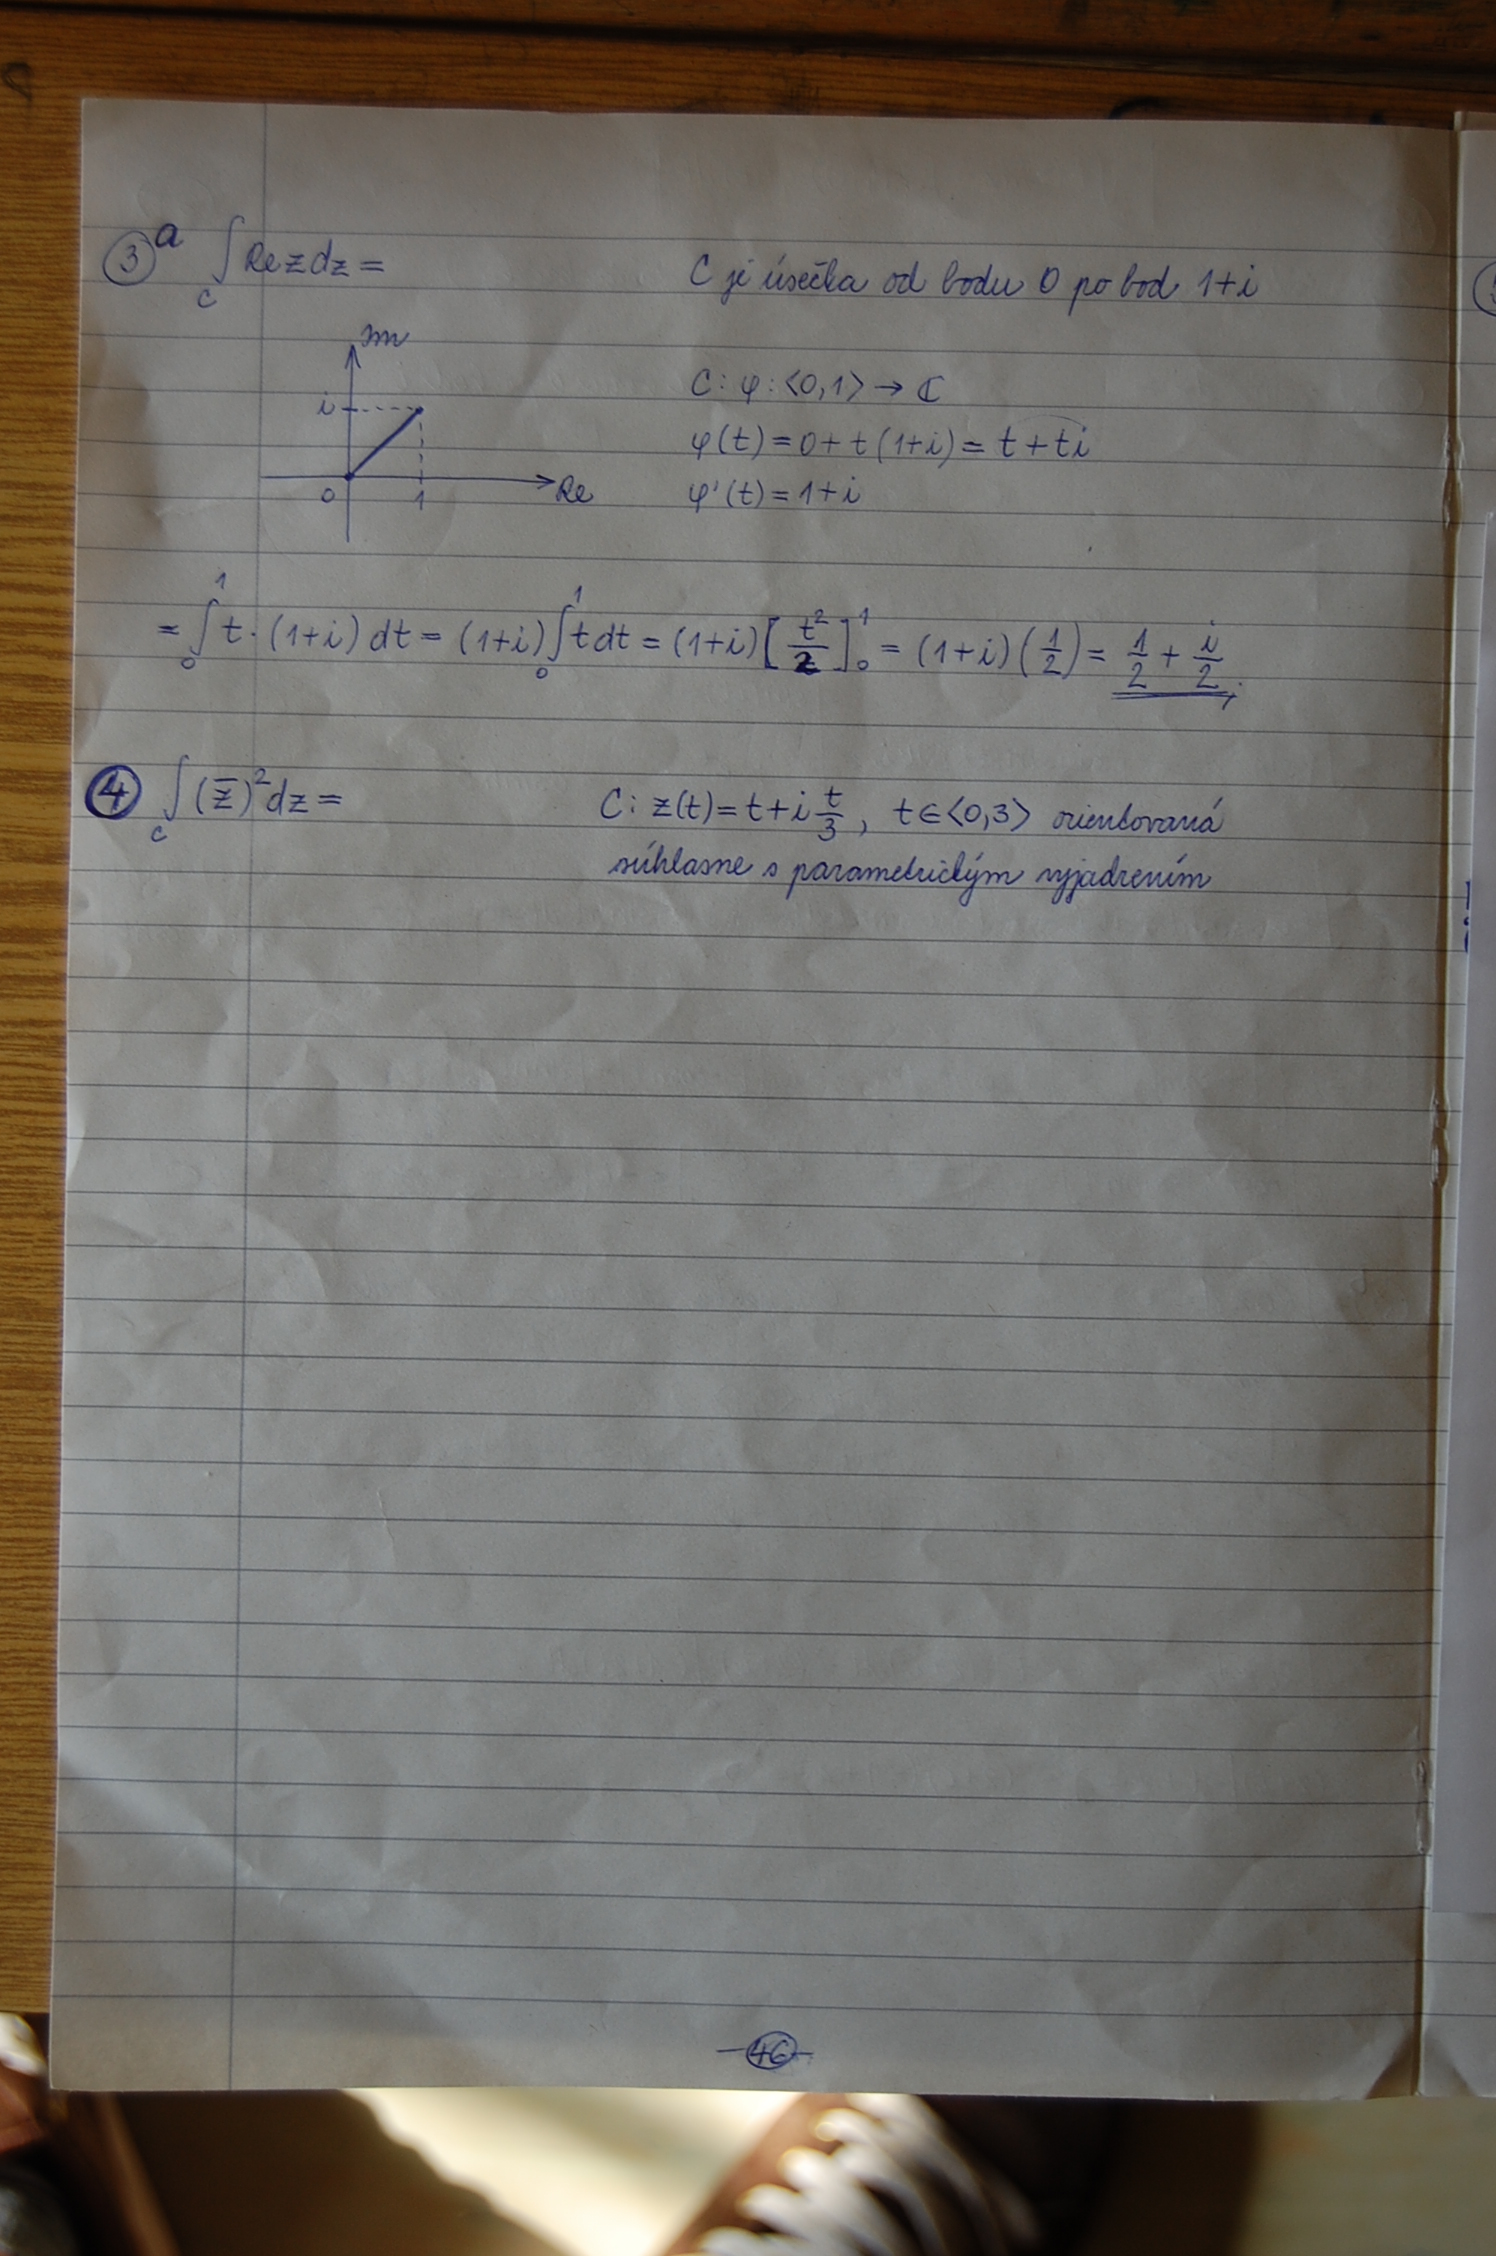 ③ a ∫_C Re z dz = C je úsečka od bodu 0 po bod 1+i
Im
i
0 1 Re
C: φ: <0,1> → ℂ
φ(t) = 0 + t(1+i) = t + ti
φ'(t) = 1+i
= ∫_0^1 t·(1+i) dt = (1+i) ∫_0^1 t dt = (1+i) [t²/2]_0^1 = (1+i)(1/2) = 1/2 + i/2
④ ∫_C (z̄)² dz = C: z(t) = t + i t/3, t ∈ <0,3> orientovaná
súhlasne s parametrickým vyjadrením
-46-